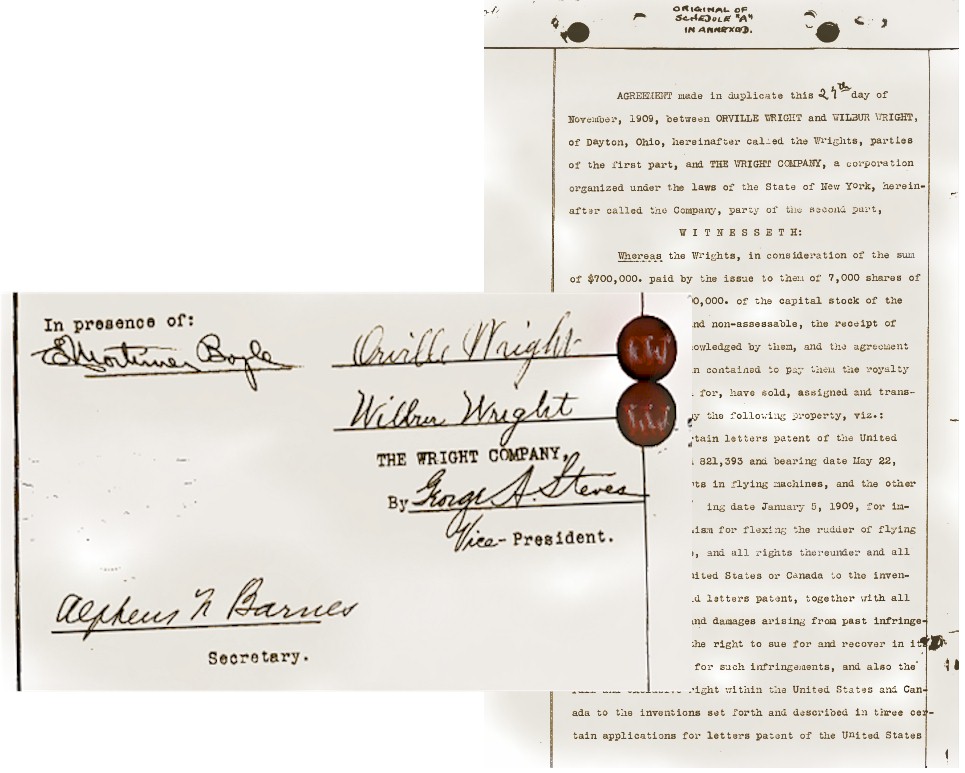 ORIGINAL OF
SCHEDULE "A"
IN ANNEXED.
AGREEMENT made in duplicate this 27th day of
November, 1909, between ORVILLE WRIGHT and WILBUR WRIGHT,
of Dayton, Ohio, hereinafter called the Wrights, parties
of the first part, and THE WRIGHT COMPANY, a corporation
organized under the laws of the State of New York, herein-
after called the Company, party of the second part,
WITNESSETH:
Whereas the Wrights, in consideration of the sum
of $700,000. paid by the issue to them of 7,000 shares of
0,000. of the capital stock of the
nd non-assessable, the receipt of
owledged by them, and the agreement
n contained to pay them the royalty
for, have sold, assigned and trans-
y the following property, viz.:
tain letters patent of the United
821,393 and bearing date May 22,
ts in flying machines, and the other
ing date January 5, 1909, for im-
ism for flexing the rudder of flying
, and all rights thereunder and all
ited States or Canada to the inven-
d letters patent, together with all
nd damages arising from past infringe-
he right to sue for and recover in it
for such infringements, and also the
right within the United States and Can-
ada to the inventions set forth and described in three cer-
tain applications for letters patent of the United States
In presence of:
E Mortimer Boyle
Orville Wright
OW
Wilbur Wright
WW
THE WRIGHT COMPANY,
By George A. Steves
Vice-President.
Alpheus F Barnes
Secretary.